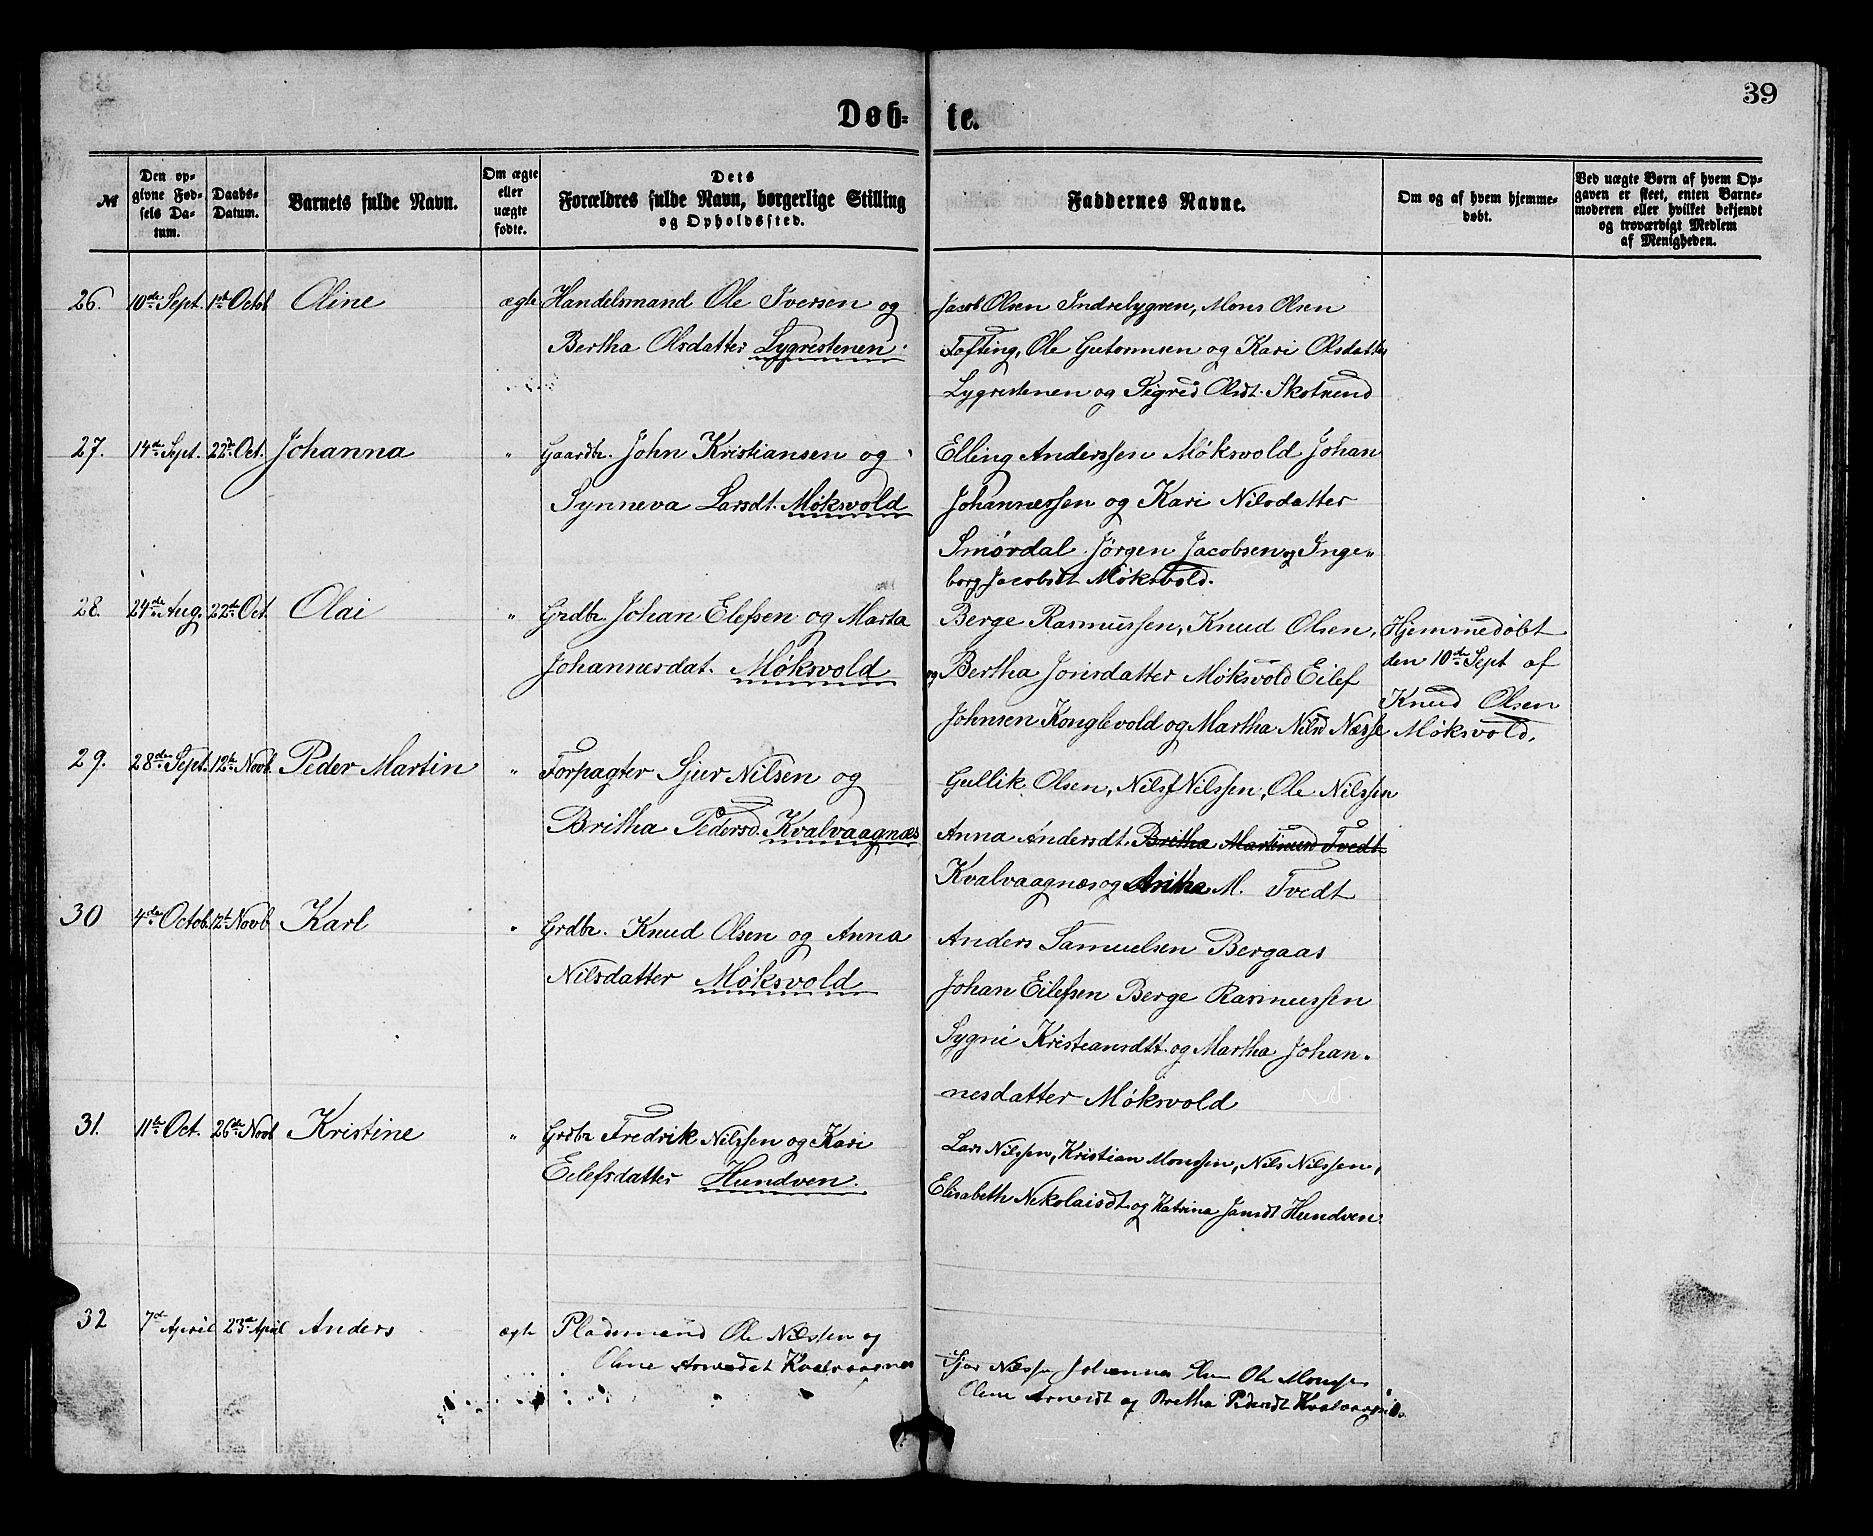 39
Døb- te.
№
Den opgivne Fødsels Datum.
Daabs-Datum.
Barnets fulde Navn.
Om ægte eller uægte fødte.
Dets Forældres fulde Navn, borgerlige Stilling og Opholdssted.
Faddernes Navne.
Om og af hvem hjemmedøbt.
Ved uægte Børn af hvem Opgaven er skeet, enten Barnemoderen eller hvilket bekjendt og troværdigt Medlem af Menigheden.
26. 10de Sept. 1ste Octob Oline ægte Handelsmand Ole Iversen og
Bertha Olsdatter Lygrestenen.
Jacob Olsen Indrelygren, Mons Olsen
Tofting, Ole Guttormsen og Kari Olsdatter
Lygrestenen og Sigrid Olsdt. Skotsund
27. 14de Sept. 22de Oct. Johanna " Gaardbr. John Kristiansen og
Synneva Larsdt. Møksvold
Elling Anderssen Møksvold Johan
Johannessen og Kari Nilsdatter
Smørdal. Jørgen Jacobsen og Inge-
borg Jacobsdt Møksvold.
28. 24de Aug. 22de Oct. Olai " Grdbr Johan Elefsen og Marta
Johannesdat. Møksvold
Berge Rasmussen, Knud Olsen,
og Bertha Jonsdatter Møksvold Eilef
Johnsen Konglevold og Martha Nilsd Næsse
Hjemmedøbt
den 10de Sept af
Knud Olsen
Møksvold.
29. 28de Sept. 12te Novb. Peder Martin " Forpagter Sjur Nilsen og
Britha Pedersd. Kvalvaagnæs
Gullik Olsen, Nils Nilssen, Ole Nilssen
Anna Andersdt. Britha Martinusd Tvedt
Kvalvaagnæs og Britha M. Tvedt
30 4de Octob. 12t Novb Karl " Grdbr. Knud Olsen og Anna
Nilsdatter Møksvold
Anders Samuelsen Bergaas
Johan Eilefsen Berge Rasmussen
Sygni Kristiansdtt. og Martha Johan-
nesdatter Møksvold
31. 11te Oct. 26de Novb Kristine " Grdbr Fredrik Nilssen og Kari
Eilefsdatter Hundven.
Lars Nilssen, Kristian Monssen, Nils Nilssen,
Elisabeth Nikolaisdt og Katrina Jansdt Hundven.
32 7de April 23de April Anders ægte Pladsmand Ole Nilssen og
Oline Arnesdt Kvalvaagnæs
Sjur Nilssen Johannes Olsen Ole Monssen
Oline Arnesdt og Bretha Pedersdt Kvalvaagnæs